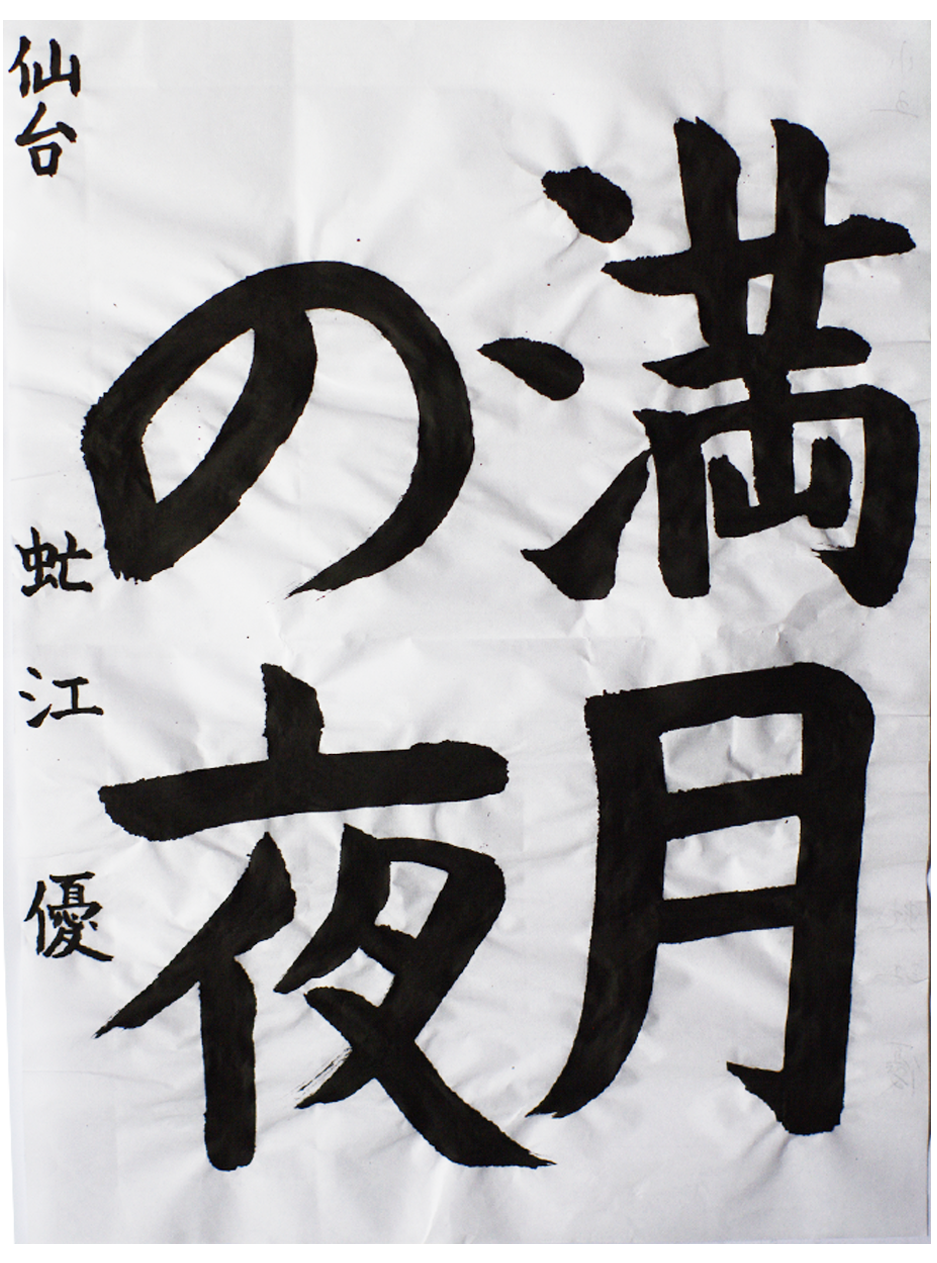 満月
の夜
仙台 虻江優